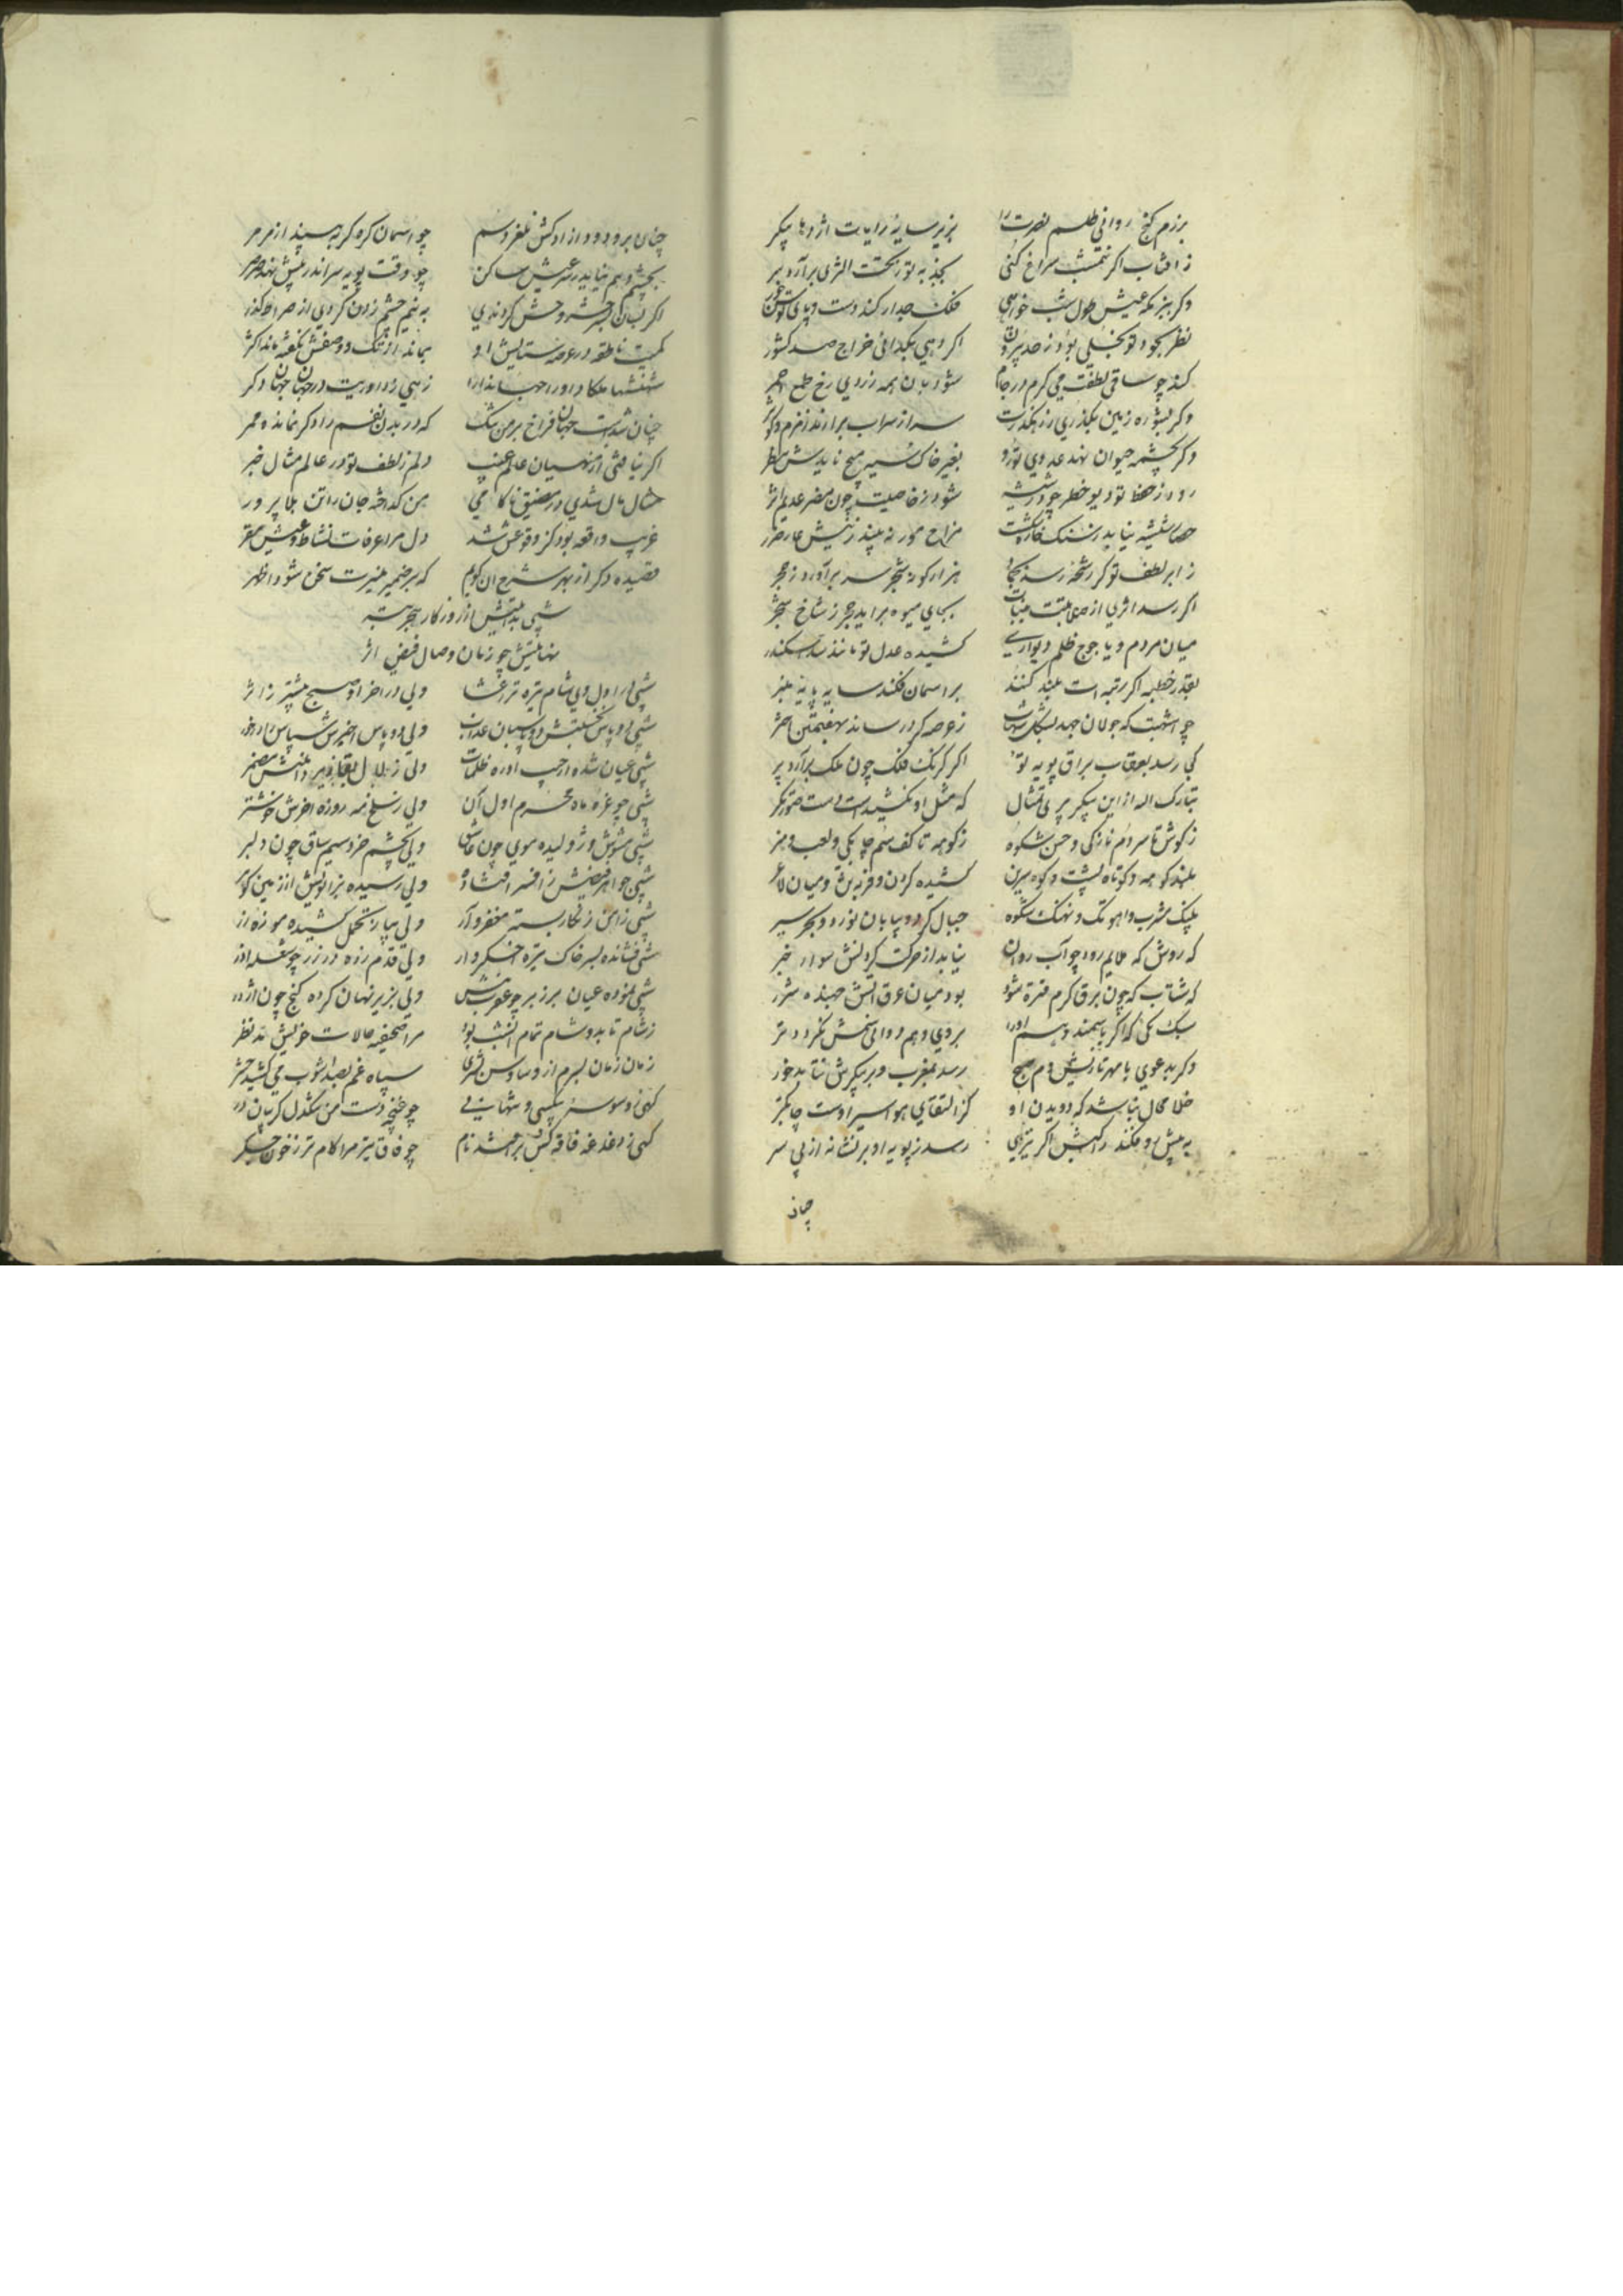 برزم کنج روانی طلسم نصرت را بزیر سایهٔ رایات اژدها پیکر
ز افتاب اکر نیمشب سراغ کنی بجذبه تو ز تحت الثری برآرد بر
وکر ببزمکه عیش طول شب خواهی فلک جدار کند دست و پای
نظر بجود تو بخیلی بود ز حد بیرون اکر دهی بکدائی خراج صد کشور
کند چو ساقی لطفت می کرم در جام شود بان همه زردی رخ طمع احمر
وکر بشوره زمین بکذری ز رهکذرت سر از سراب برارند زمزم و کوثر
وکر بچشمه حیوان نهد عدوی تو رو بغیر خاک سیه هیچ نایدش بنظر
رود ز حفظ تو دیو خطر چو در شیشه شود ز خاصیت چون مضر عدیم اثر
حصار شیشه نیابد ز سنک خاره شکست مزاج مور نه بیند ز نیش مار ضرر
ز ابر لطف تو کر رشحهٔ رسد بجماد هزار کونه شجر سر برآورد ز حجر
اکر رسد اثری از صلابتت بنبات بجای میوه براید حجر ز شاخ شجر
میان مردم و یاجوج ظلم دیواریست کشیده عدل تو مانند سد اسکندر
بقدر خطبه اکر رتبه است بلند کنند بر اسمان فکند سایه پایهٔ منبر
چو اشهبت که جولان جهد ز عرصه کرد رساند بهفتمین اختر
کی رسد بعقاب براق پویه تو اکر کرنک فلک چون ملک برآرد پر
تبارک اله از این پیکر پری تمثال که مثل او نکشیداست دست صورتکر
ز کوش تا سر دم نازکی و حسن شکوه ز کوهه تا کف سم چابکی و لعب و هنر
بلند کوهه و کوتاه پشت و کوه سرین کشیده کردن و فربه و میان لاغر
پلنک مشرب و اهو تک و نهنک شکوه جبال کرد و بیابان نورد و بحر سپر
که روش که ملایم رود چو آب روان نیابد از حرکت کردنش سوار خبر
که شتاب که چون برق کرم فتره شود بود میان عرق اتش جهنده شرر
سبک تکی که اکر پا نهند و سم او را بروی وهم روانی سمش نکردد تر
وکر بدعوی با مهر تازیش دم صبح رسد بمغرب و بر پیکرش نتابد خور
خلا محال نباشد که دویدن او کز التقای هوا سیر اوست چابکتر
به پیش رو فکند راکبش اکر تیری رسد ز پویه او بر نشانه از پی سر
چنان
چنان برو رود از او کش نلغزد سم چو اسمان کره کر به سپند از مرمر
بچشم وهم نماید ز سرعتش ساکن چو وقت پویه سر اندر پیش نهد صرصر
اکر بسان بشر وحش کردندی به نیم چشم زدن کردی از صراط کذر
کمیت ناطقه در عرصه ستایش او بماند از تک و وصفش نکفته ماند اکثر
شهنشها ملکا داورا جهاندارا زهی ز داوریت در جهان جهان دکر
چنان شدست جهان فراخ بر من تنک که در بدن نفسم را دکر نمانده ممر
اکر نیافتی از منهیان عالم غیب دلم ز لطف تو در عالم مثال خبر
مثال مال شدی در مضیق ناکامی بمن کداخته جان را تن بلا پرور
غریب واقعه بود کز وقوعش شد دل مرا عرفات نشاط و عیش مقر
قصیده دکر از بهر شرح ان کویم که بر ضمیر منیرت سخن شود اظهر
شبی بدایتش از روزکار هجر بتر
نهایتش چو زمان وصال فیض اثر
شبی در اول وی شام تیره تر ز عشا ولی در اخر او صبح بیشتر ز اثر
شبی دو پاس نخستینش دو پاسبان عذاب ولی دو پاس اخیرش
شبی عیان شده از جیب او ره ظلمات ولی زلال بقا زیر دامنش مضمر
شبی چو غره ماه محرم اول آن ولی ز سلخ مه روزه اخرش خوشتر
شبی مشوش و ژولیده موی چون عاشق ولی بچشم خرد سیم ساق چون دلبر
شبی جواهر فیضش ز افسر افتاده ولی رسیده بزانویش از زمین کوهر
شبی زاهن زنکار بسته مغفر وار ولی بپا ز تحمل کشیده موزه زر
شبی فشانده بسر خاک تیره اخکر وار ولی قدم زده در زر چو شعله اذر
شبی نموده عیان بر زبر چو عقرب نیش ولی بزیر نهان کرده کنج چون اژدر
ز شام تا بدو شام تمام انشب بود مرا صحیفه حالات خویش مد نظر
زمان زمان بسرم از وساوس بشری سپاه غم بصد اشوب می کشید حشر
کهی ز وسوسه بیکسی و تنهائی چو غنچه دست من تنکدل کریبان در
کهی ز دغدغه فاقه کس برامد نام چو فاق تیر مرا کام تر ز خون جکر